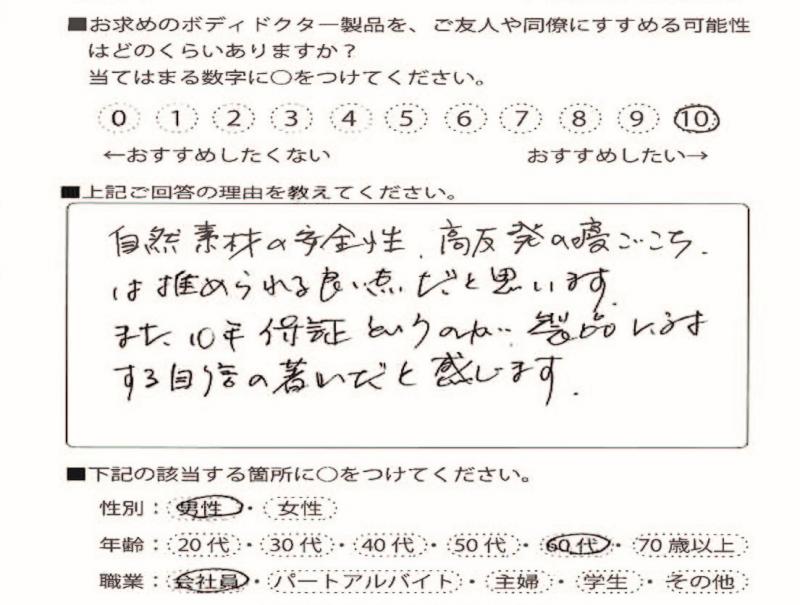 ■お求めのボディドクター製品を、ご友人や同僚にすすめる可能性
はどのくらいありますか？
当てはまる数字に○をつけてください。
0 1 2 3 4 5 6 7 8 9 10
←おすすめしたくない おすすめしたい→
■上記ご回答の理由を教えてください。
自然素材の安全性、高反発の寝ごこち、
は推められる良い点だと思います
また、10年保証というのが、製品にたい
する自信の著いだと感じます.
■下記の該当する箇所に○をつけてください。
性別：男性・女性
年齢：20代・30代・40代・50代・60代・70歳以上
職業：会社員・パートアルバイト・主婦・学生・その他